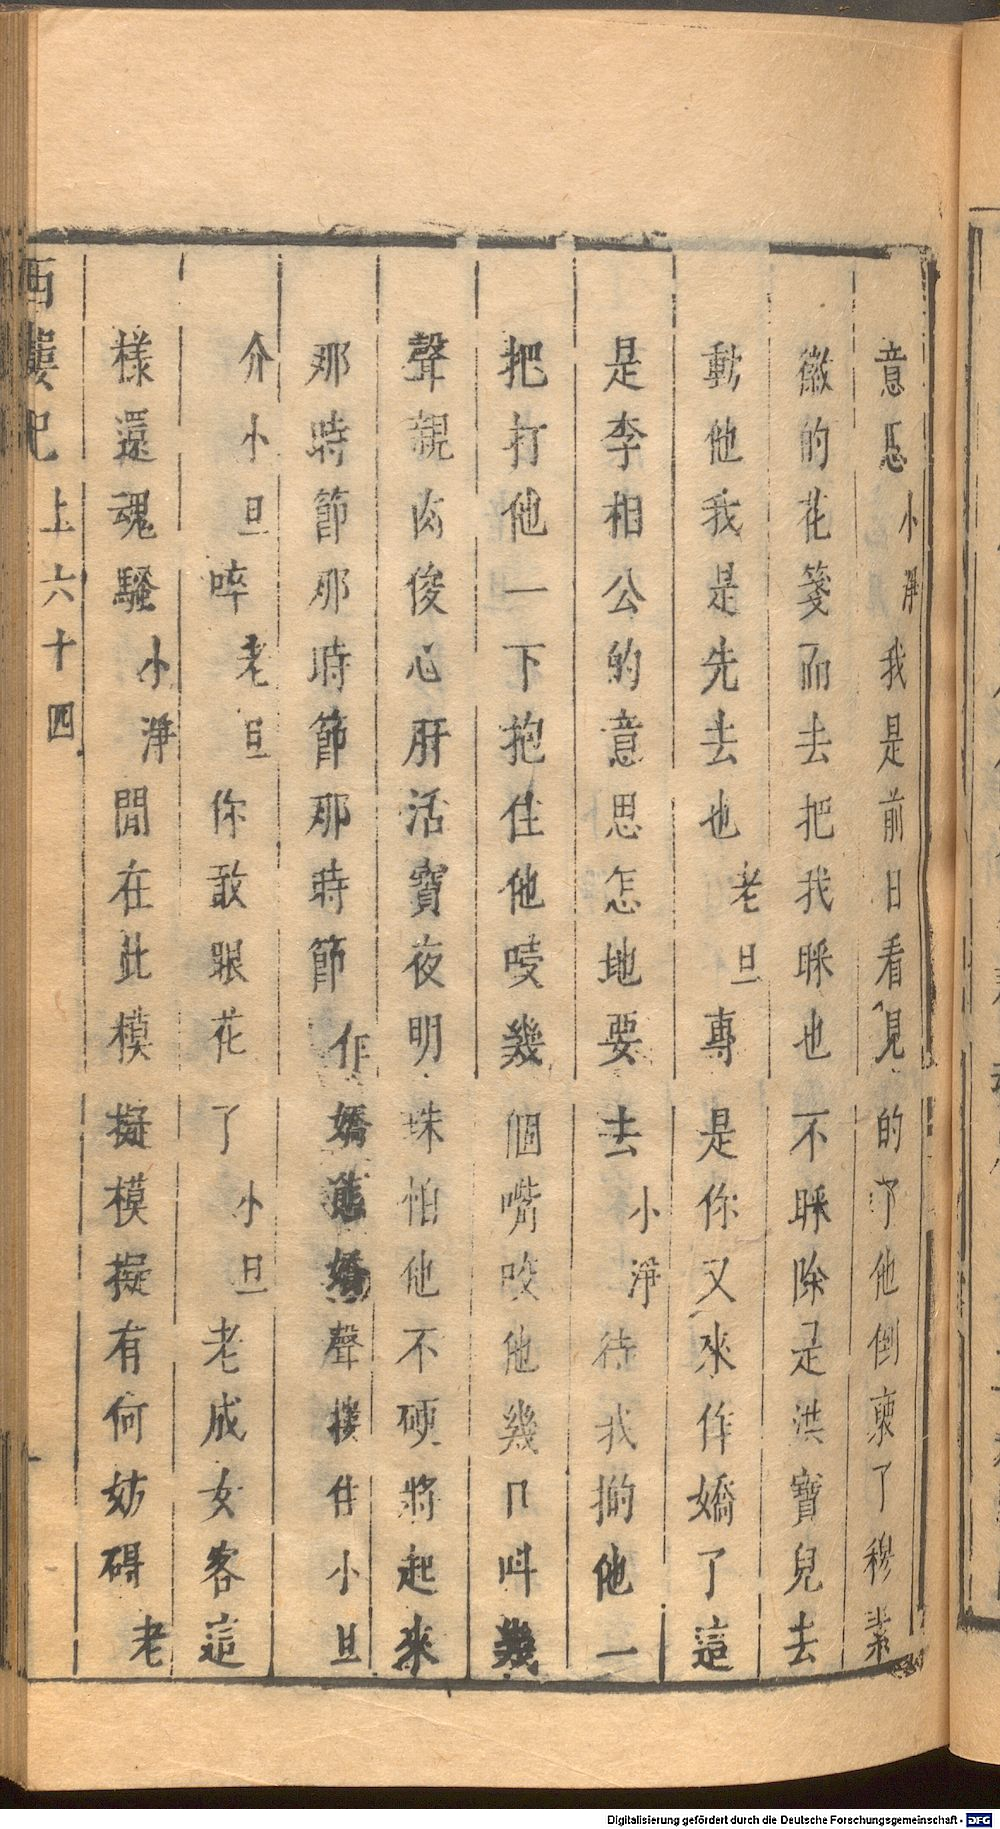 意恁小淨我是前日看見的了他倒東了穆素
徽的花箋而去把我睬也不睬除是洪寶兒去
動他我是先去也老旦專是你又來作嬌了這
是李相公的意思怎地要去小淨待我搠他一
把打他一下抱住他唛幾個嘴咬他幾口呌幾
聲親肉俊心肝活寶夜明珠怕他不硬將起來
那時節那時節那時節作嬌態嬌聲摟住小旦
介小旦啐老旦你敢眼花了小旦老成女客這
樣還魂騷小淨閒在此模擬模擬有何妨碍老
西樓記上六十四
Digitalisierung gefördert durch die Deutsche Forschungsgemeinschaft - DFG